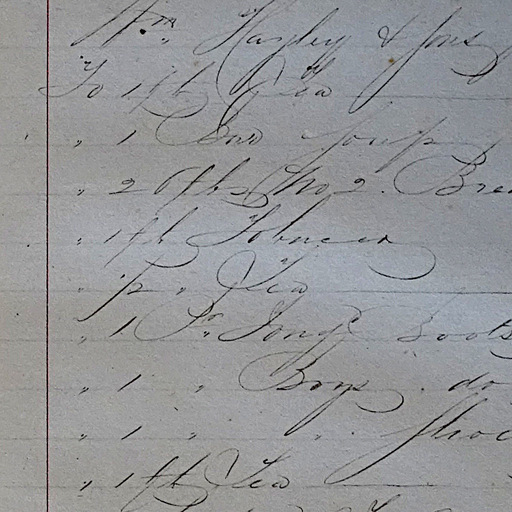 Wm " Hanley & sons
To 1 lb Tea
" 1 Bar soap
" 26 lbs No 2. Brea
" 1 lb Tobacco
" " " Tea
" 1 Pr Long boots
" 1 " Boys do
" 1 " " shoe
" 1 lb Tea